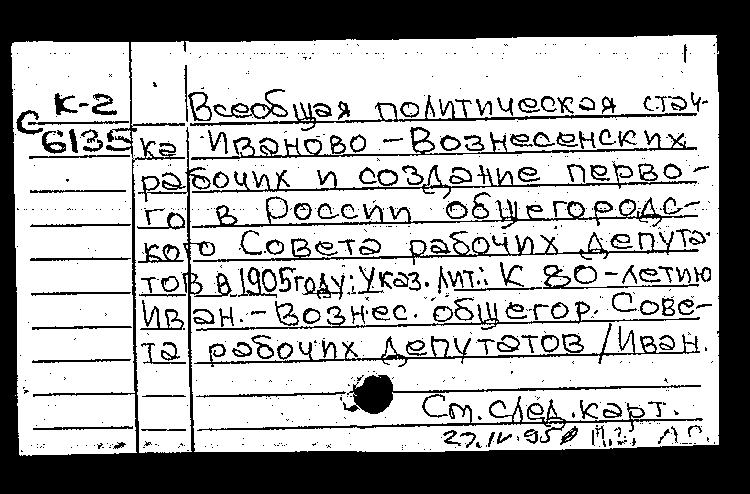 К-2
С
6135
Всеобщая политическая стач-
ка Иваново-Вознесенских
рабочих и создание перво-
го в России общегородс-
кого Совета рабочих депута-
тов в 1905 году: Указ. лит.: К 80-летию
Иван.-Вознес. общегор. Сове-
та рабочих депутатов /Иван.
См. след. карт.